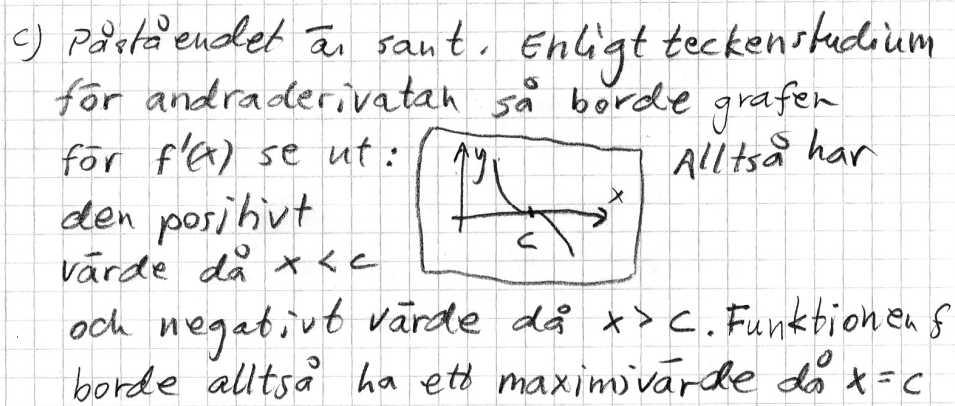 c) Påståendet är sant. Enligt teckenstudium
för andraderivatan så borde grafen
för f'(x) se ut: y x c Alltså har
den positivt
värde då x < c
och negativt värde då x > c. Funktionen f
borde alltså ha ett maximivärde då x = c